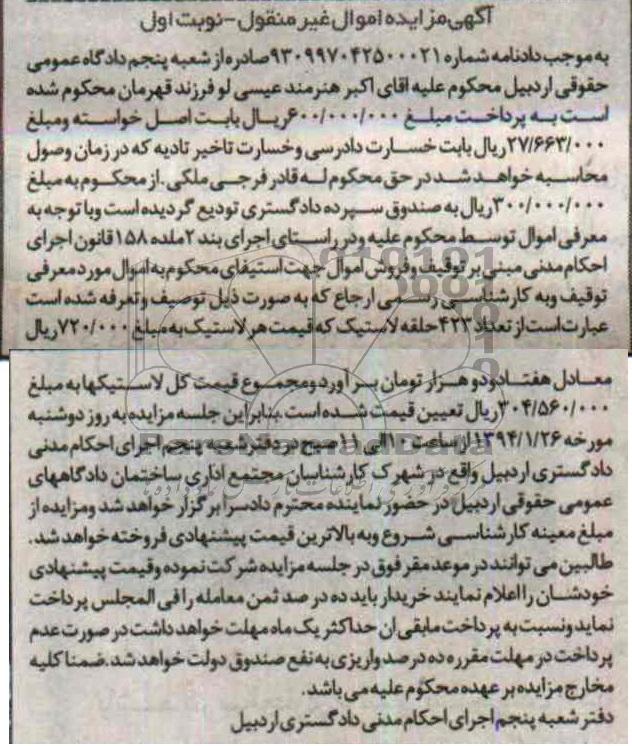 آگهی مزایده اموال غیر منقول - نوبت اول
به موجب دادنامه شماره ۹۳۰۹۹۷۰۴۲۵۰۰۰۲۱ صادره از شعبه پنجم دادگاه عمومی
حقوقی اردبیل محکوم علیه اقای اکبر هنرمند عیسی لو فرزند قهرمان محکوم شده
است به پرداخت مبلغ ۶۰۰/۰۰۰/۰۰۰ ریال بابت اصل خواسته ومبلغ
۲۷/۶۶۳/۰۰۰ ریال بابت خسارت دادرسی وخسارت تاخیر تادیه که در زمان وصول
محاسبه خواهد شد در حق محکوم له قادر فرجی ملکی. از محکوم به مبلغ
۳۰۰/۰۰۰/۰۰۰ ریال به صندوق سپرده دادگستری تودیع گردیده است وبا توجه به
معرفی اموال توسط محکوم علیه ودر راستای اجرای بند ۲ماده ۱۵۸ قانون اجرای
احکام مدنی مبنی بر توقیف وفروش اموال جهت استیفای محکوم به اموال مورد معرفی
توقیف وبه کارشناسی رسمی ارجاع که به صورت ذیل توصیف وتعرفه شده است
عبارت است از تعداد ۴۲۳ حلقه لاستیک که قیمت هر لاستیک به مبلغ ۷۲۰/۰۰۰ ریال
معادل هفتادودو هزار تومان بر آورد ومجموع قیمت کل لاستیکها به مبلغ
۳۰۴/۵۶۰/۰۰۰ ریال تعیین قیمت شده است بنابراین جلسه مزایده به روز دوشنبه
مورخه ۱۳۹۴/۱/۲۶ از ساعت ۱۰ الی ۱۱ صبح در دفتر شعبه پنجم اجرای احکام مدنی
دادگستری اردبیل واقع در شهرک کارشناسان مجتمع اداری ساختمان دادگاههای
عمومی حقوقی اردبیل در حضور نماینده محترم دادسرا برگزار خواهد شد ومزایده از
مبلغ معینه کارشناسی شروع وبه بالاترین قیمت پیشنهادی فروخته خواهد شد.
طالبین می توانند در موعد مقرر فوق در جلسه مزایده شرکت نموده وقیمت پیشنهادی
خودشان را اعلام نمایند خریدار باید ده در صد ثمن معامله را فی المجلس پرداخت
نماید ونسبت به پرداخت مابقی ان حداکثر یک ماه مهلت خواهد داشت در صورت عدم
پرداخت در مهلت مقرره ده درصد واریزی به نفع صندوق دولت خواهد شد. ضمنا کلیه
مخارج مزایده بر عهده محکوم علیه می باشد.
دفتر شعبه پنجم اجرای احکام مدنی دادگستری اردبیل